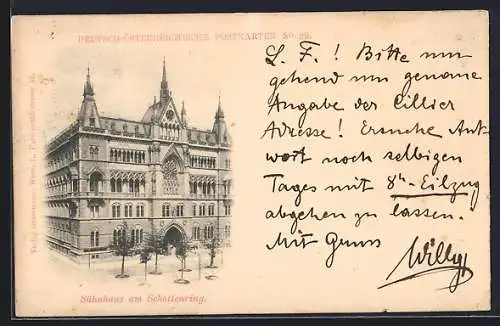 DEUTSCH-ÖSTERREICHISCHE POSTKARTEN No. 99.
L. F.! Bitte um
gehend um genaue
Angabe der Cillier
Adresse! Ersuche Ant-
wort noch selbigen
Tages mit 8h-Eilzug
abgehen zu lassen.
Mit Gruss
Willy
Sühnhaus am Schottenring.